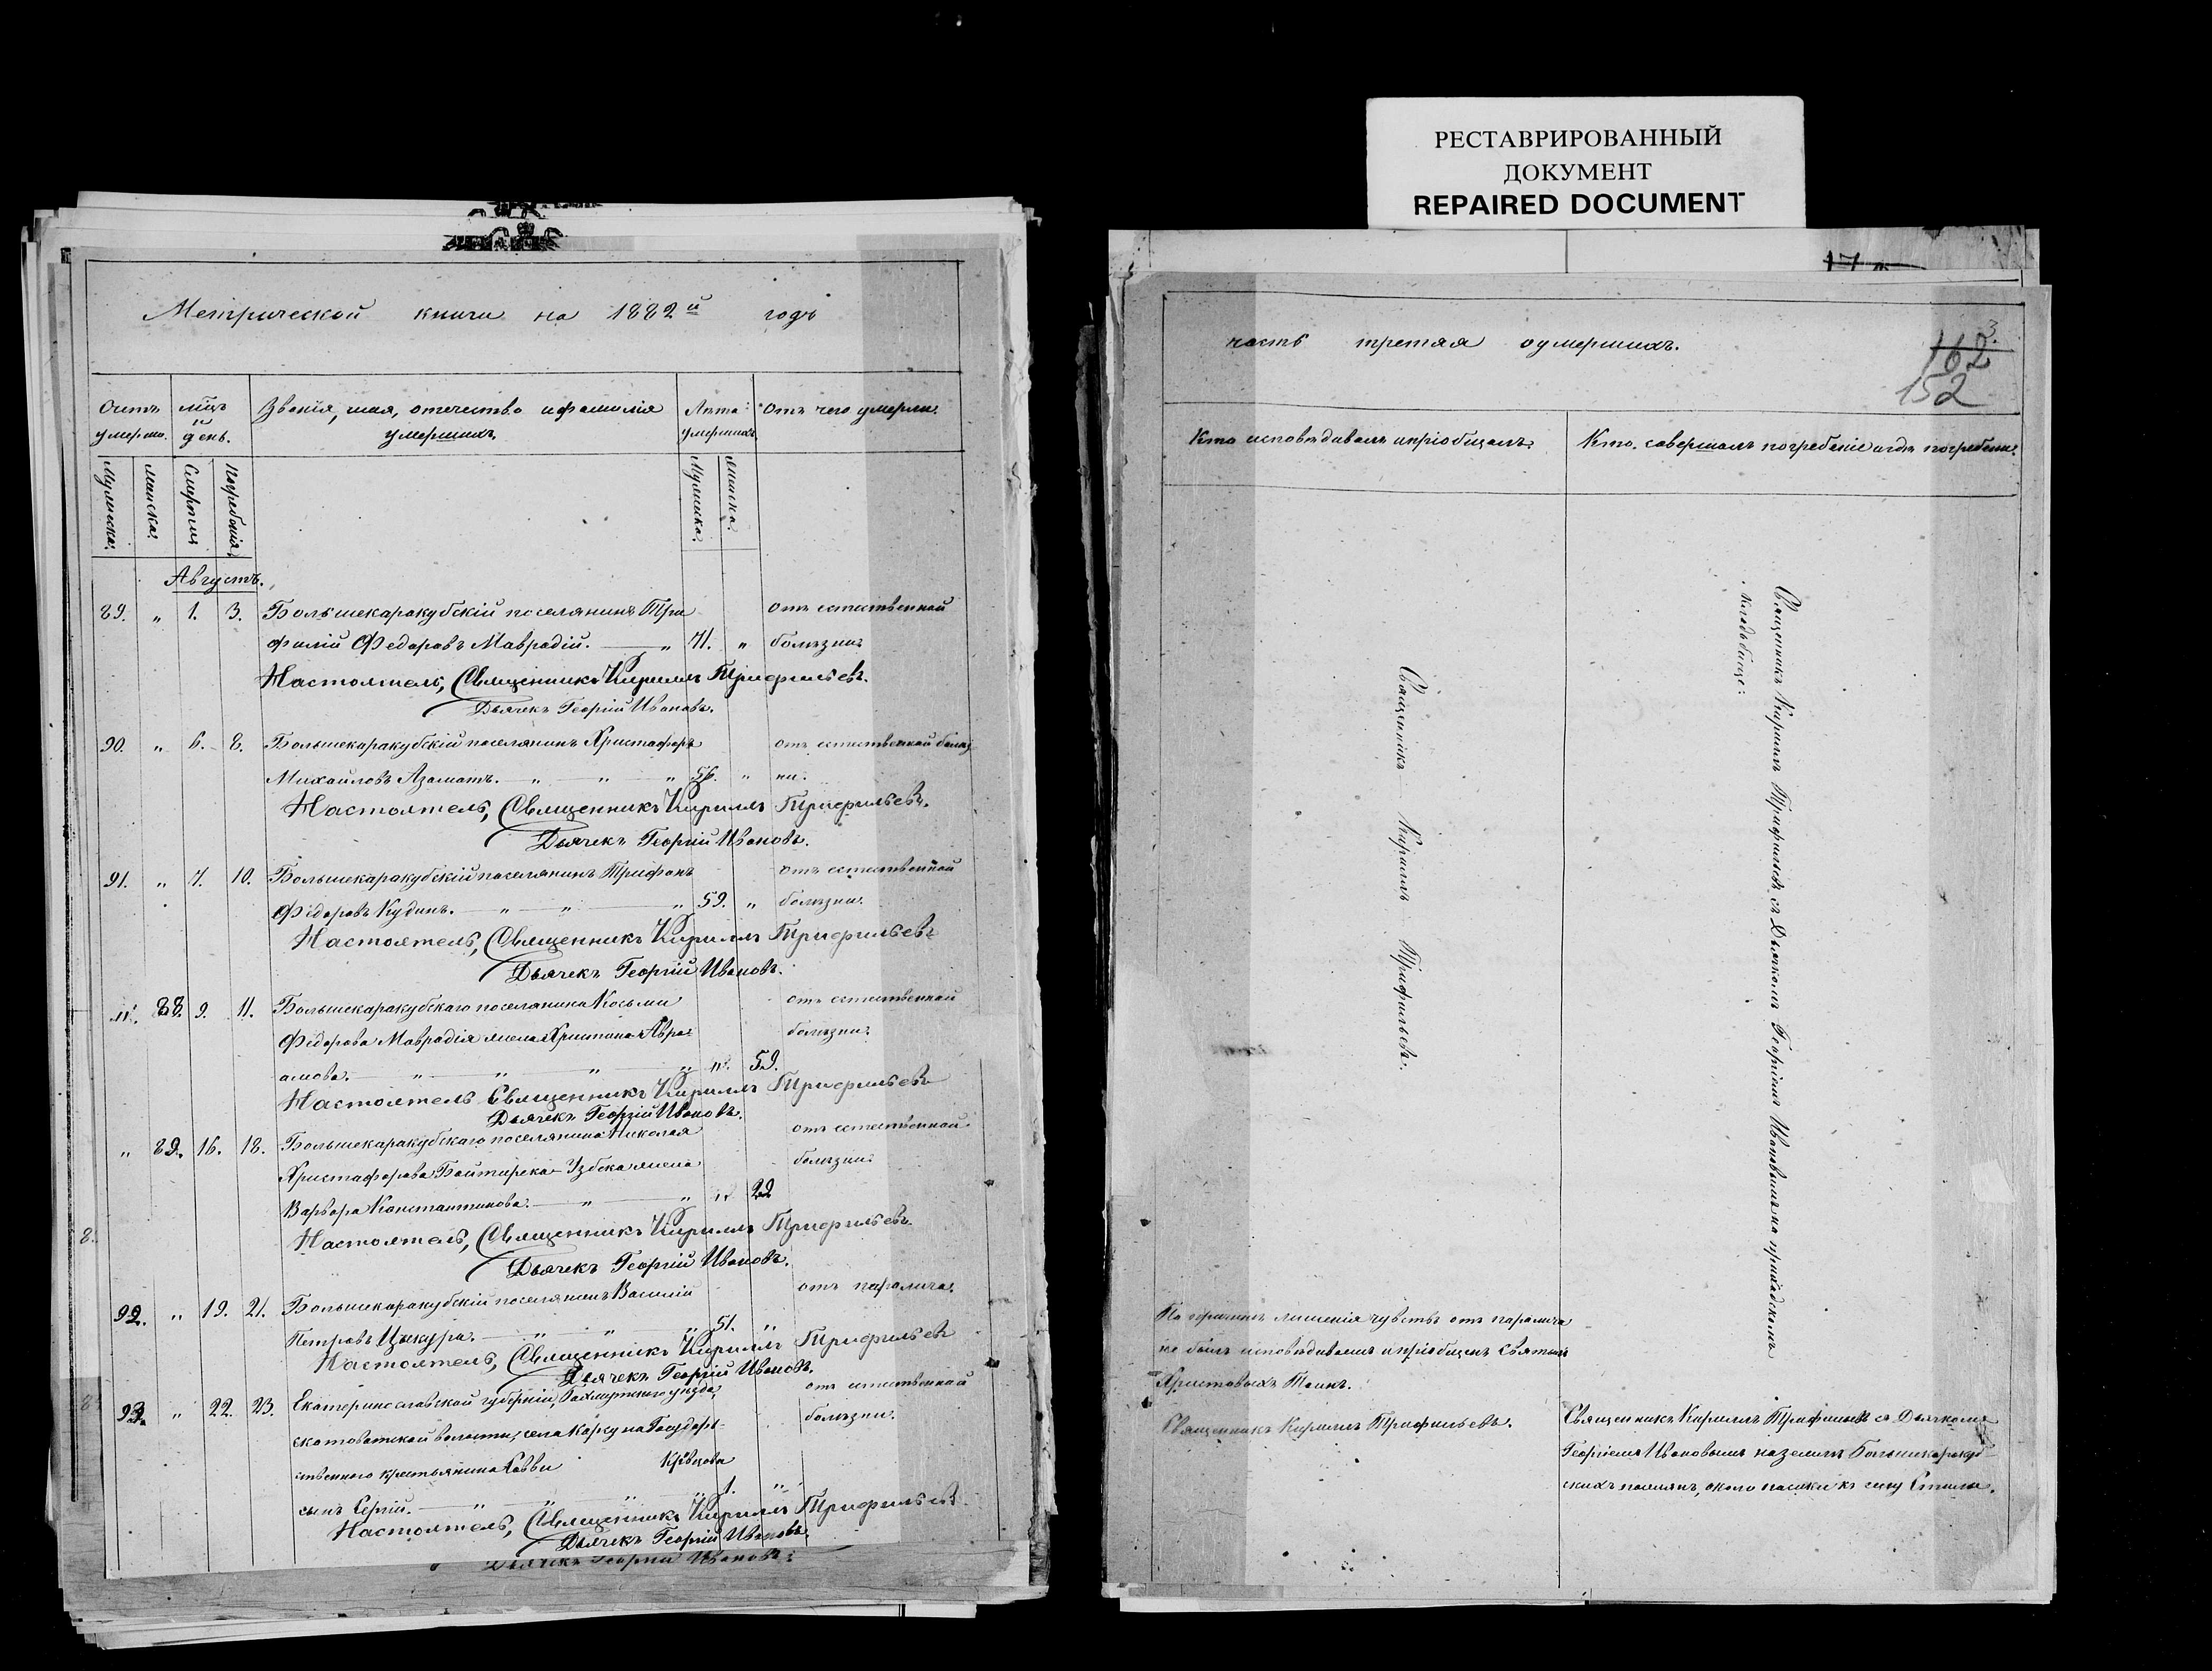 Метрической книги на 1882й годъ
Счетъ умерш. мцъ и день. Званія, имя, отечество и фамилія умершихъ. Лѣта умершихъ. Отъ чего умерли.
Мужеска. Женска. Смерти Погребенія. Мужеска. Женска.
Августъ.
89. „ 1. 3. Большекаракубскій поселянинъ Три отъ естественной
филій Федоровъ Маврадій. „ 71. „ болѣзни
Настоятель, Священникъ Кириллъ Трифильевъ.
Дьячекъ Георгій Ивановъ.
90. „ 6. 8. Большекаракубскій поселянинъ Христафоръ отъ естественной болѣз
Михайловъ Азаматъ. „ „ „ 56. „ ни.
Настоятель, Священникъ Кириллъ Трифильевъ.
Дьячекъ Георгій Ивановъ.
91. „ 7. 10. Большекаракубскій поселянинъ Трифонъ отъ естественной
Федоровъ Кудинъ. „ „ „ 59. „ болѣзни.
Настоятель, Священникъ Кириллъ Трифильевъ
Дьячекъ Георгій Ивановъ.
„ 88. 9. 11. Большекаракубскаго поселянина Косьми отъ естественной
Федорова Маврадія жена Христина Авра- болѣзни.
амова. „ „ „ „ „ 59.
Настоятель Священникъ Кириллъ Трифильевъ
Дьячекъ Георгій Ивановъ.
„ 89. 16. 18. Большекаракубскаго поселянина Николая отъ естественной
Христафорова Байтирека-Узбека жена болѣзни.
Варвара Константинова. „ „ „ 22
Настоятель, Священникъ Кириллъ Трифильевъ.
Дьячекъ Георгій Ивановъ.
92. „ 19. 21. Большекаракубскій поселянинъ Василій отъ паралича.
Петровъ Цыкура. „ „ „ 51. „
Настоятель, Священникъ Кириллъ Трифильевъ
Дьячекъ Георгій Ивановъ.
93. „ 22. 23. Екатеринославской губерніи, Бахмутскаго уѣзда, отъ естественной
волости, села Государ- болѣзни.
ственного крестьянина Савви
сынъ Сергій. „ „ „ „ 1. „
Настоятель, Священникъ Кириллъ Трифильевъ.
Дьячекъ Георгій Ивановъ.
Дьячекъ Георгій Ивановъ.
РЕСТАВРИРОВАННЫЙ
ДОКУМЕНТ
REPAIRED DOCUMENT
часть третяя о умершихъ.
3
162
152
Кто исповѣдывалъ и пріобщалъ. Кто совершалъ погребеніе и гдѣ погребены.
Священникъ Кириллъ Трифильевъ.
Священникъ Кириллъ Трифильевъ съ Дьячкомъ Георгіемъ Ивановымъ на приходскомъ
кладбищѣ.
По причинѣ лишенія чувствъ отъ паралича
не былъ исповѣдываемъ и пріобщенъ Святыхъ
Христовыхъ Таинъ.
Священникъ Кириллъ Трифильевъ.
Священникъ Кириллъ Трифильевъ съ Дьячкомъ
Георгіемъ Ивановымъ на землѣ Большекаракуб-
скихъ поселянъ, около пасики къ селу Стыла.